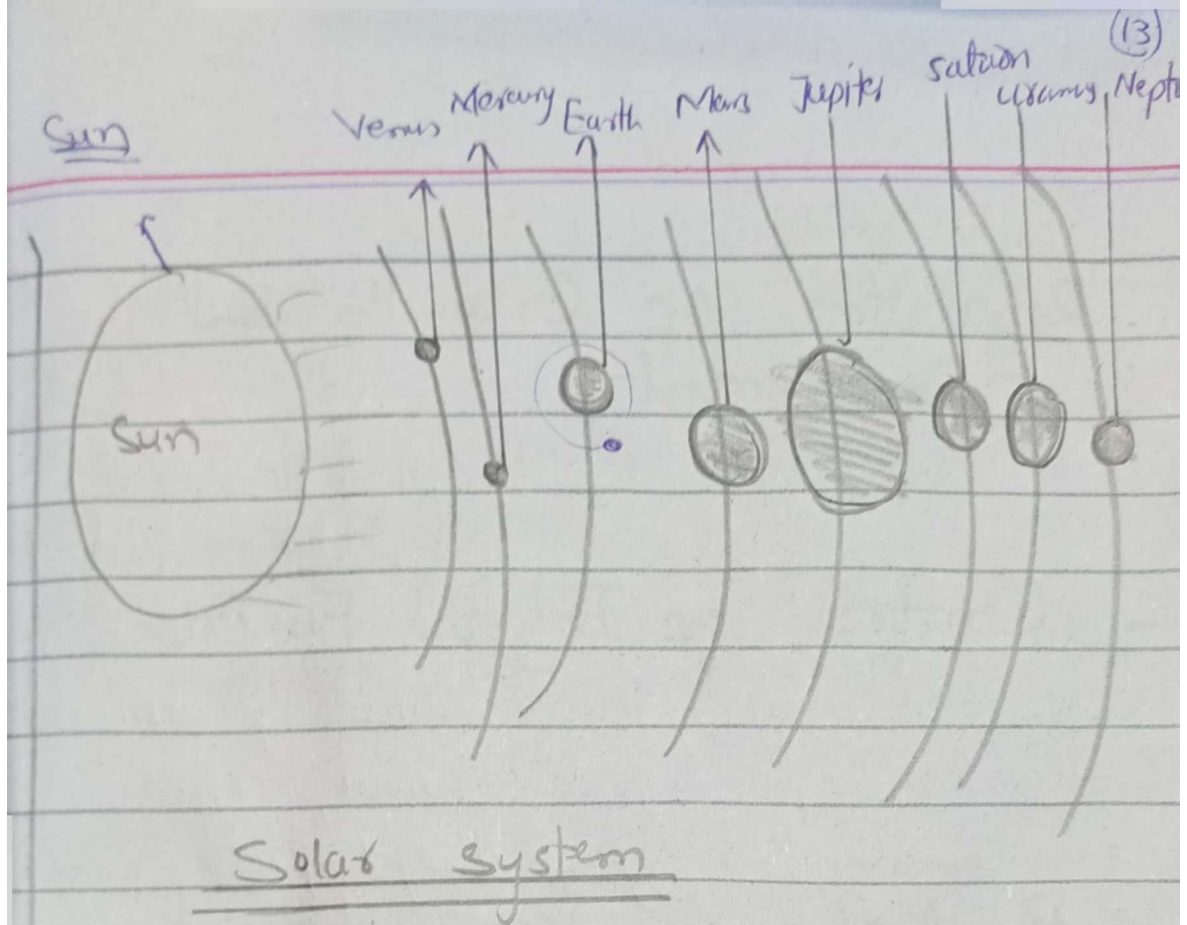 (13)
Sun Venus Mercury Earth Mars Jupiter Saturn Uranus, Neptu
Sun
Solar System